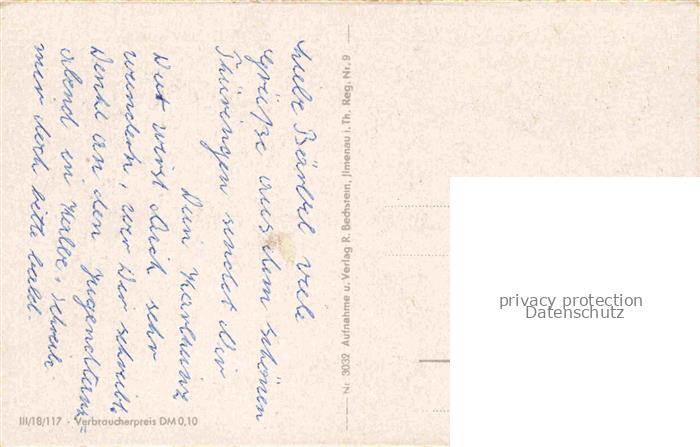 Liebe Bärbel viele
Grüße aus dem schönen
Thüringen sendet Dir
Dein Karlheinz
Du wirst Dich sehr
wundern, wer Dir schreibt.
Denke an den Jugendtanz=
abend in Halle. Schreibe
mir doch bitte bald.
Nr. 3032 Aufnahme u. Verlag R. Bechstein, Jlmenau i. Th. Reg. Nr. 9
III/18/117 · Verbraucherpreis DM 0,10
privacy protection
Datenschutz